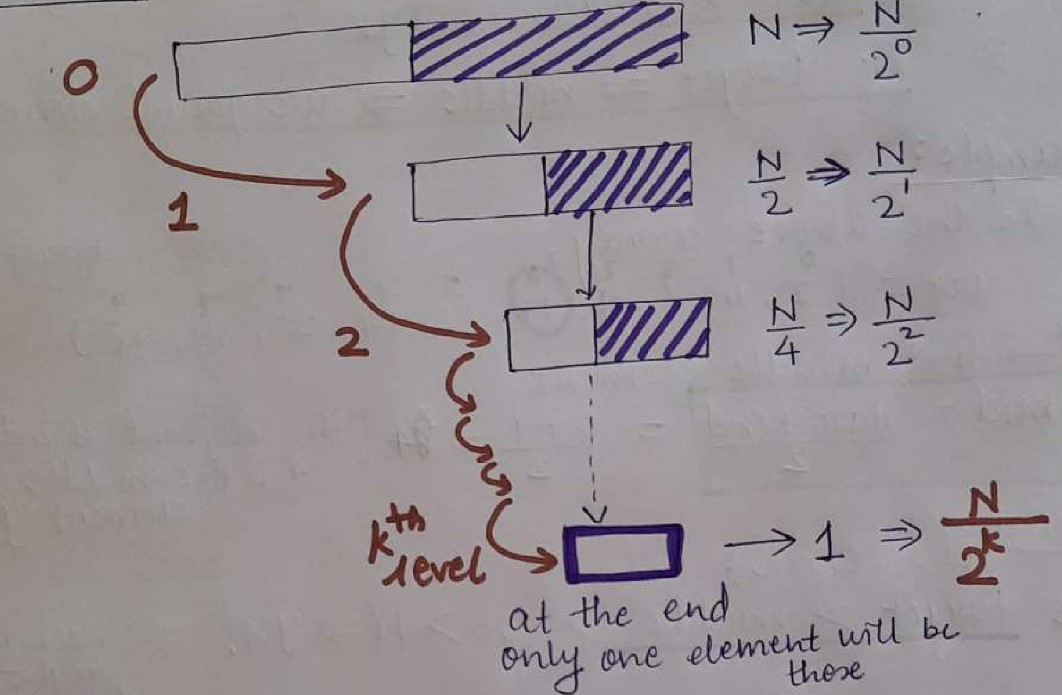 0
N ⇒ N/2⁰
1
N/2 ⇒ N/2¹
2
N/4 ⇒ N/2²
kth level
→ 1 ⇒ N/2ᵏ
at the end
only one element will be
those